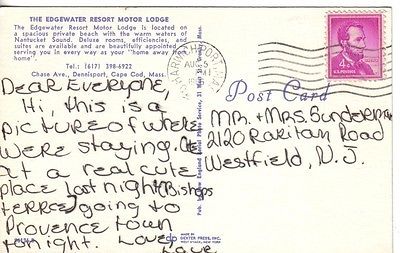 THE EDGEWATER RESORT MOTOR LODGE
The Edgewater Resort Motor Lodge is located on
a spacious private beach with the warm waters of
Nantucket Sound. Deluxe rooms, efficiencies, and
suites are available and are beautifully appointed
serving you in every way as your "home away from
home".
Tel.: (617) 398-6922
Chase Ave., Dennisport, Cape Cod, Mass.
Dear Everyone,
Hi, this is a
picture of where
were staying. Ate
at a real cute
place last night (Bishops
terrec) going to
Provence town
tonight. Love,
Love
HARWICH PORT
AUG
Post Card
4¢
U.S. POSTAGE
Mr. + Mrs.
2120 Raritan Road
Westfield, N.J.
MADE BY
DEXTER PRESS, INC.
WEST NYACK, NEW YORK